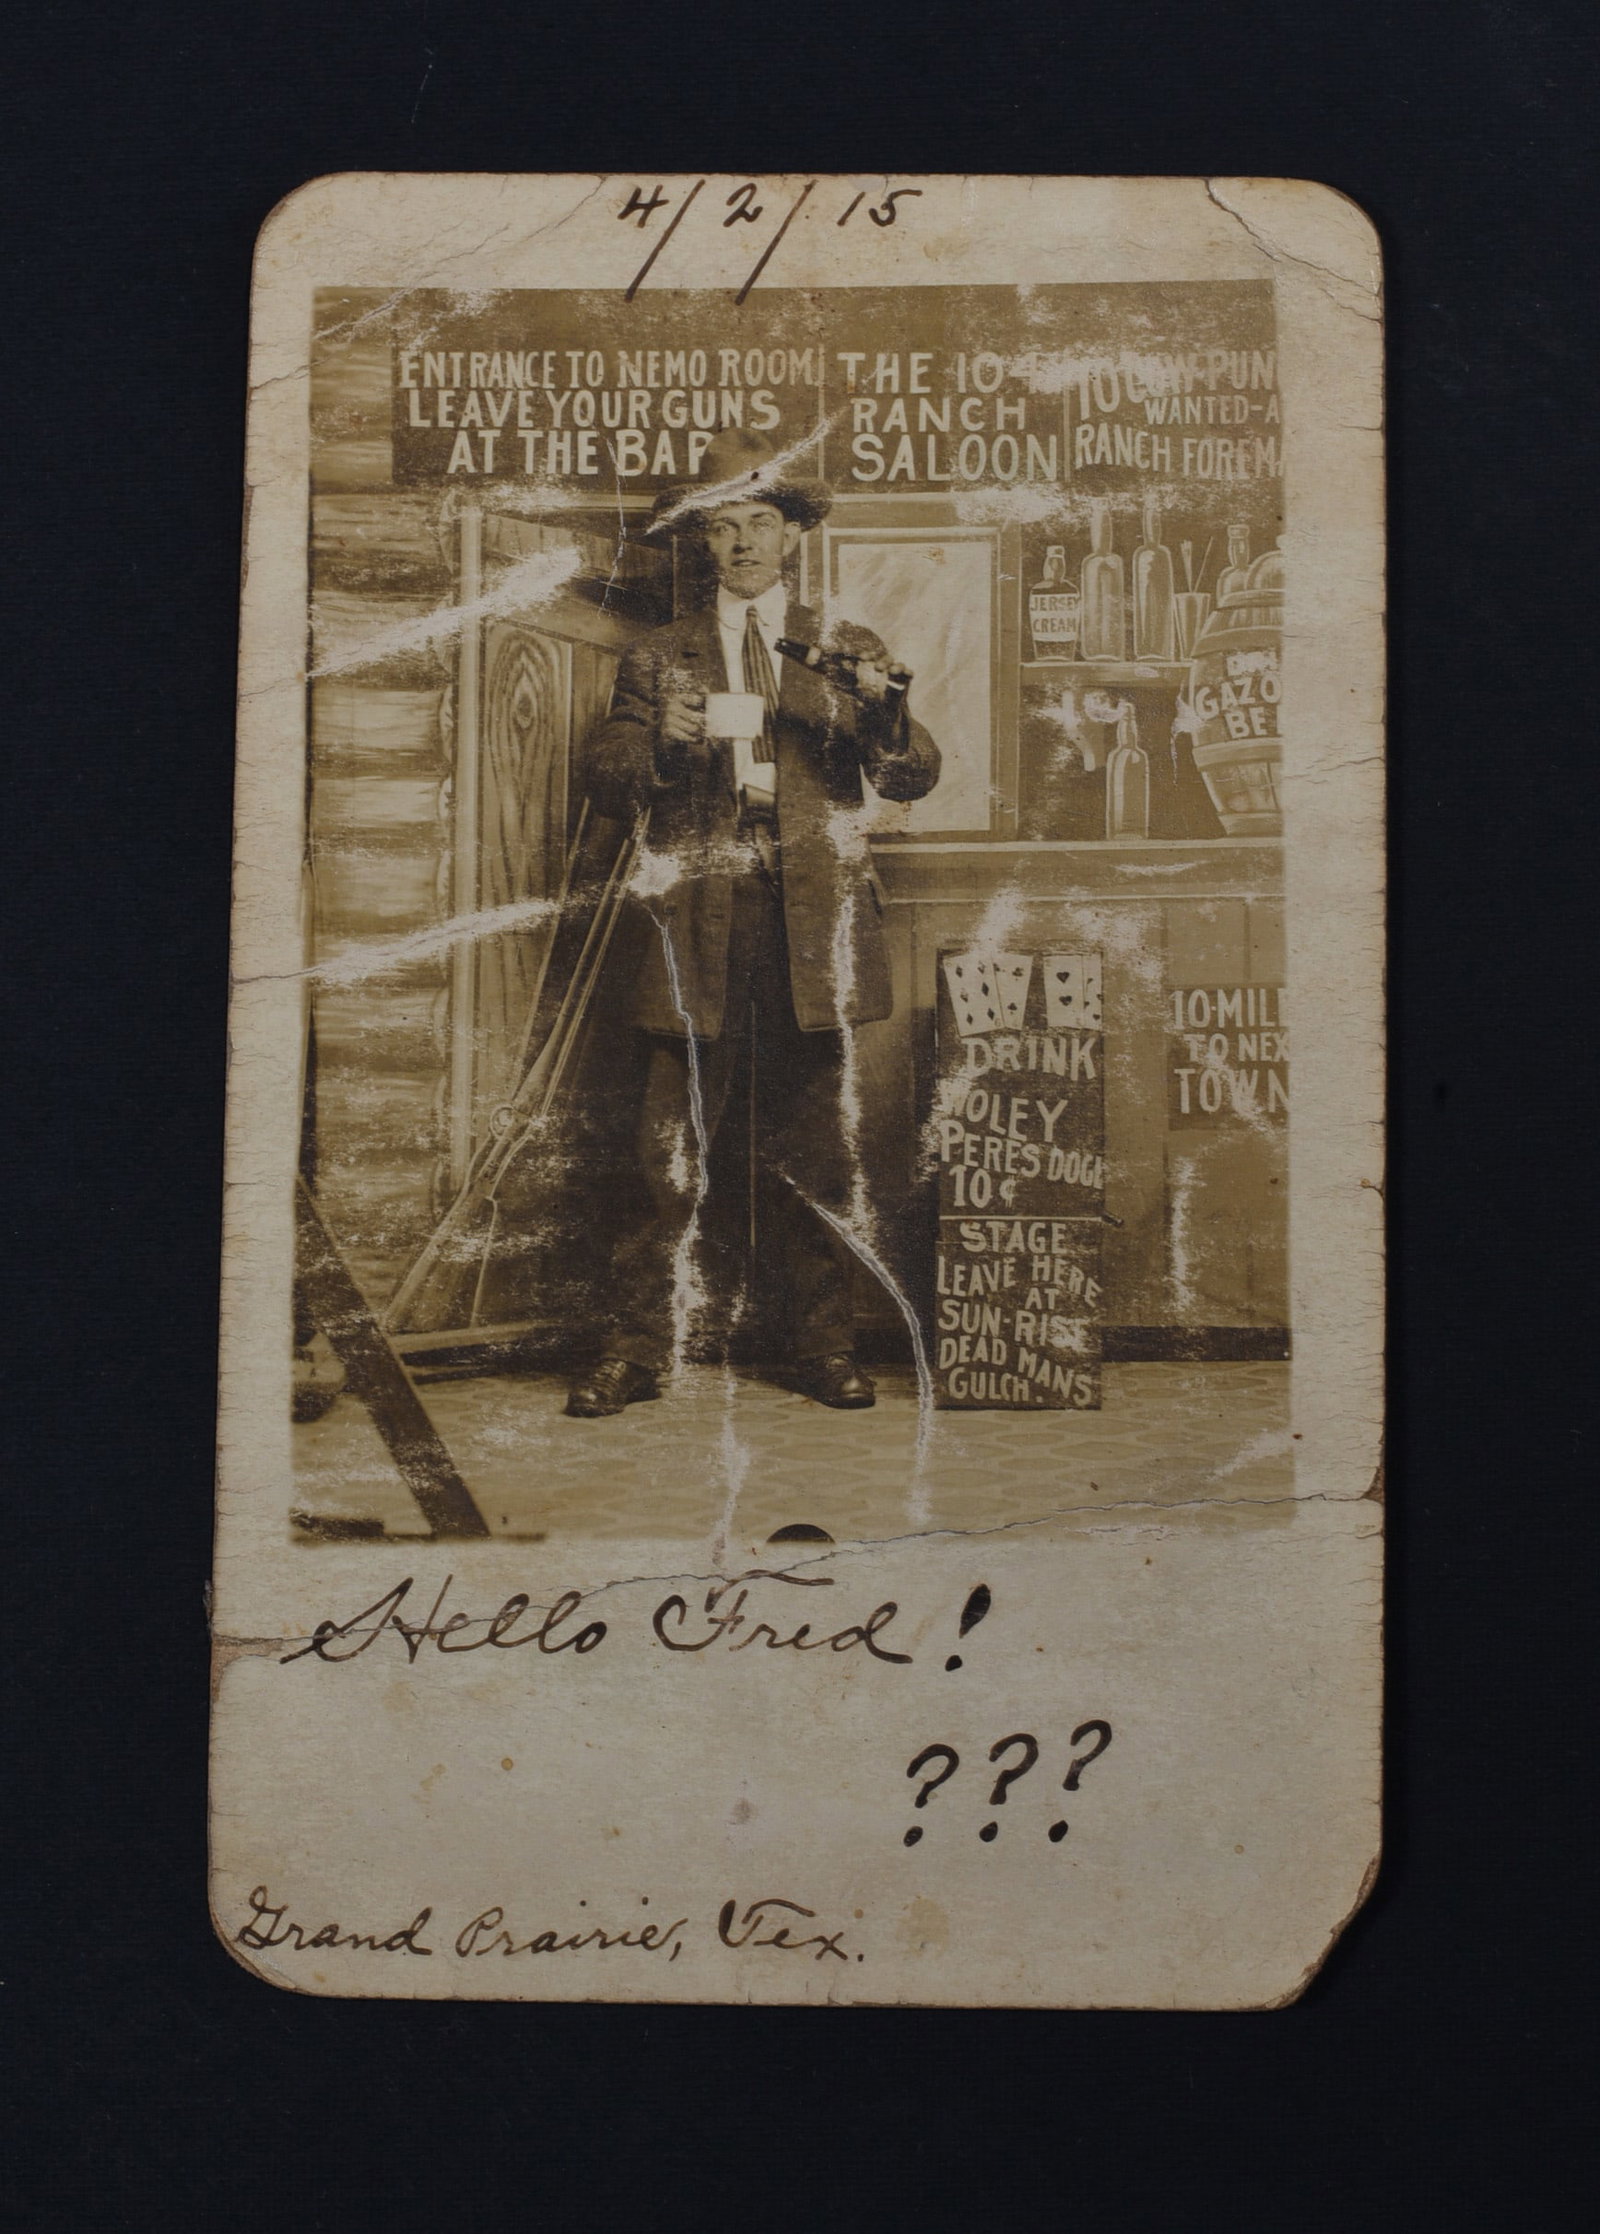 4/2/15
ENTRANCE TO NEMO ROOM
LEAVE YOUR GUNS
AT THE BAR
THE 104
RANCH
SALOON
10 COW-PUN
WANTED-A
RANCH FOREM
JERSEY
CREAM
GAZO
BE
DRINK
PERES DOGE
10¢
STAGE
LEAVE HERE
AT
SUN-RISE
DEAD MANS
GULCH.
10-MIL
TO NEX
TOWN
Hello Fred!
???
Grand Prairie, Tex.